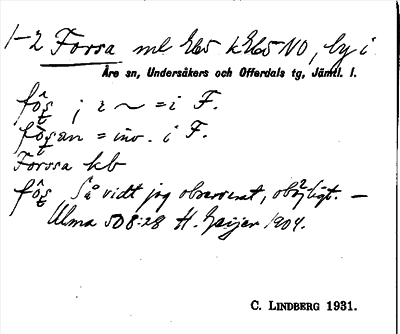 1-2 Forsa ml Ed5 kEd5NO, by i
Åre sn, Undersåkers och Offerdals tg, Jämtl. l.
; i ~ = i F.
= inv. i F.
Forssa kb
Så vidt jag observerat, oböjligt. —
Ulma 508:28 H. Geijer 1904.
C. LINDBERG 1931.